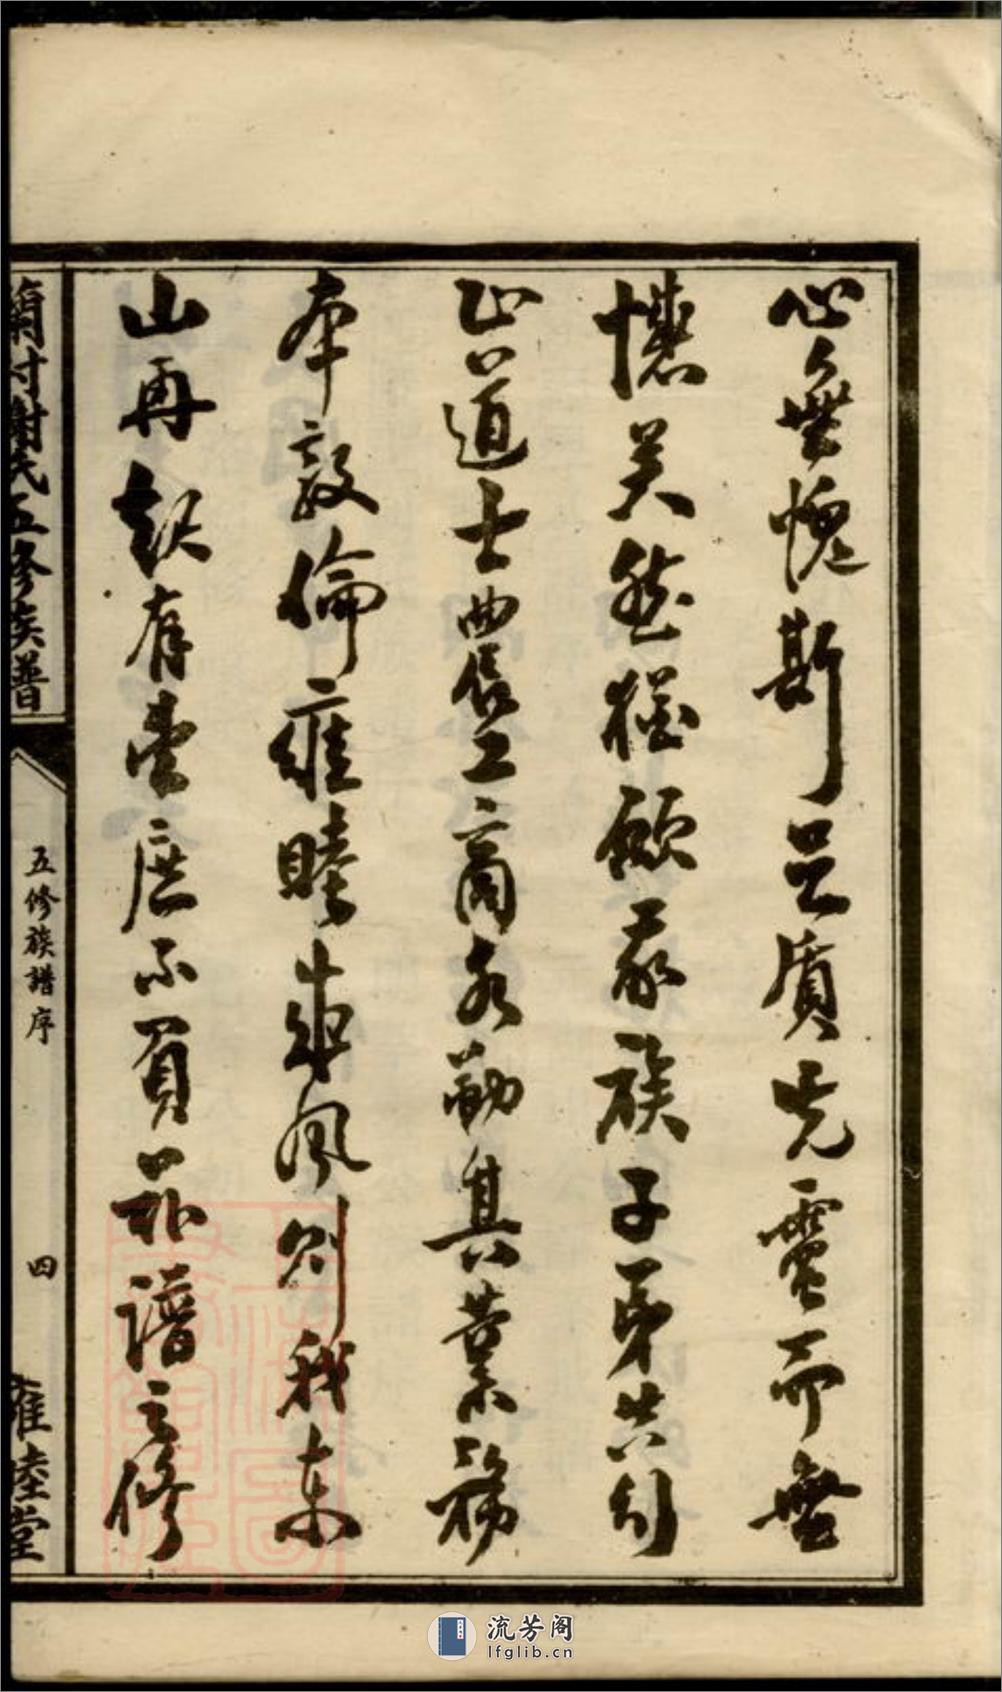 心無愧斯足質先靈而無
矣然猶願我族子弟共
正道士農工商各勤其業務
本敦倫雍睦成風則我東
山再起有望庶不負譜之修
村謝氏五修族譜
五修族譜序
四
雍睦堂
流芳阁
lfglib.cn